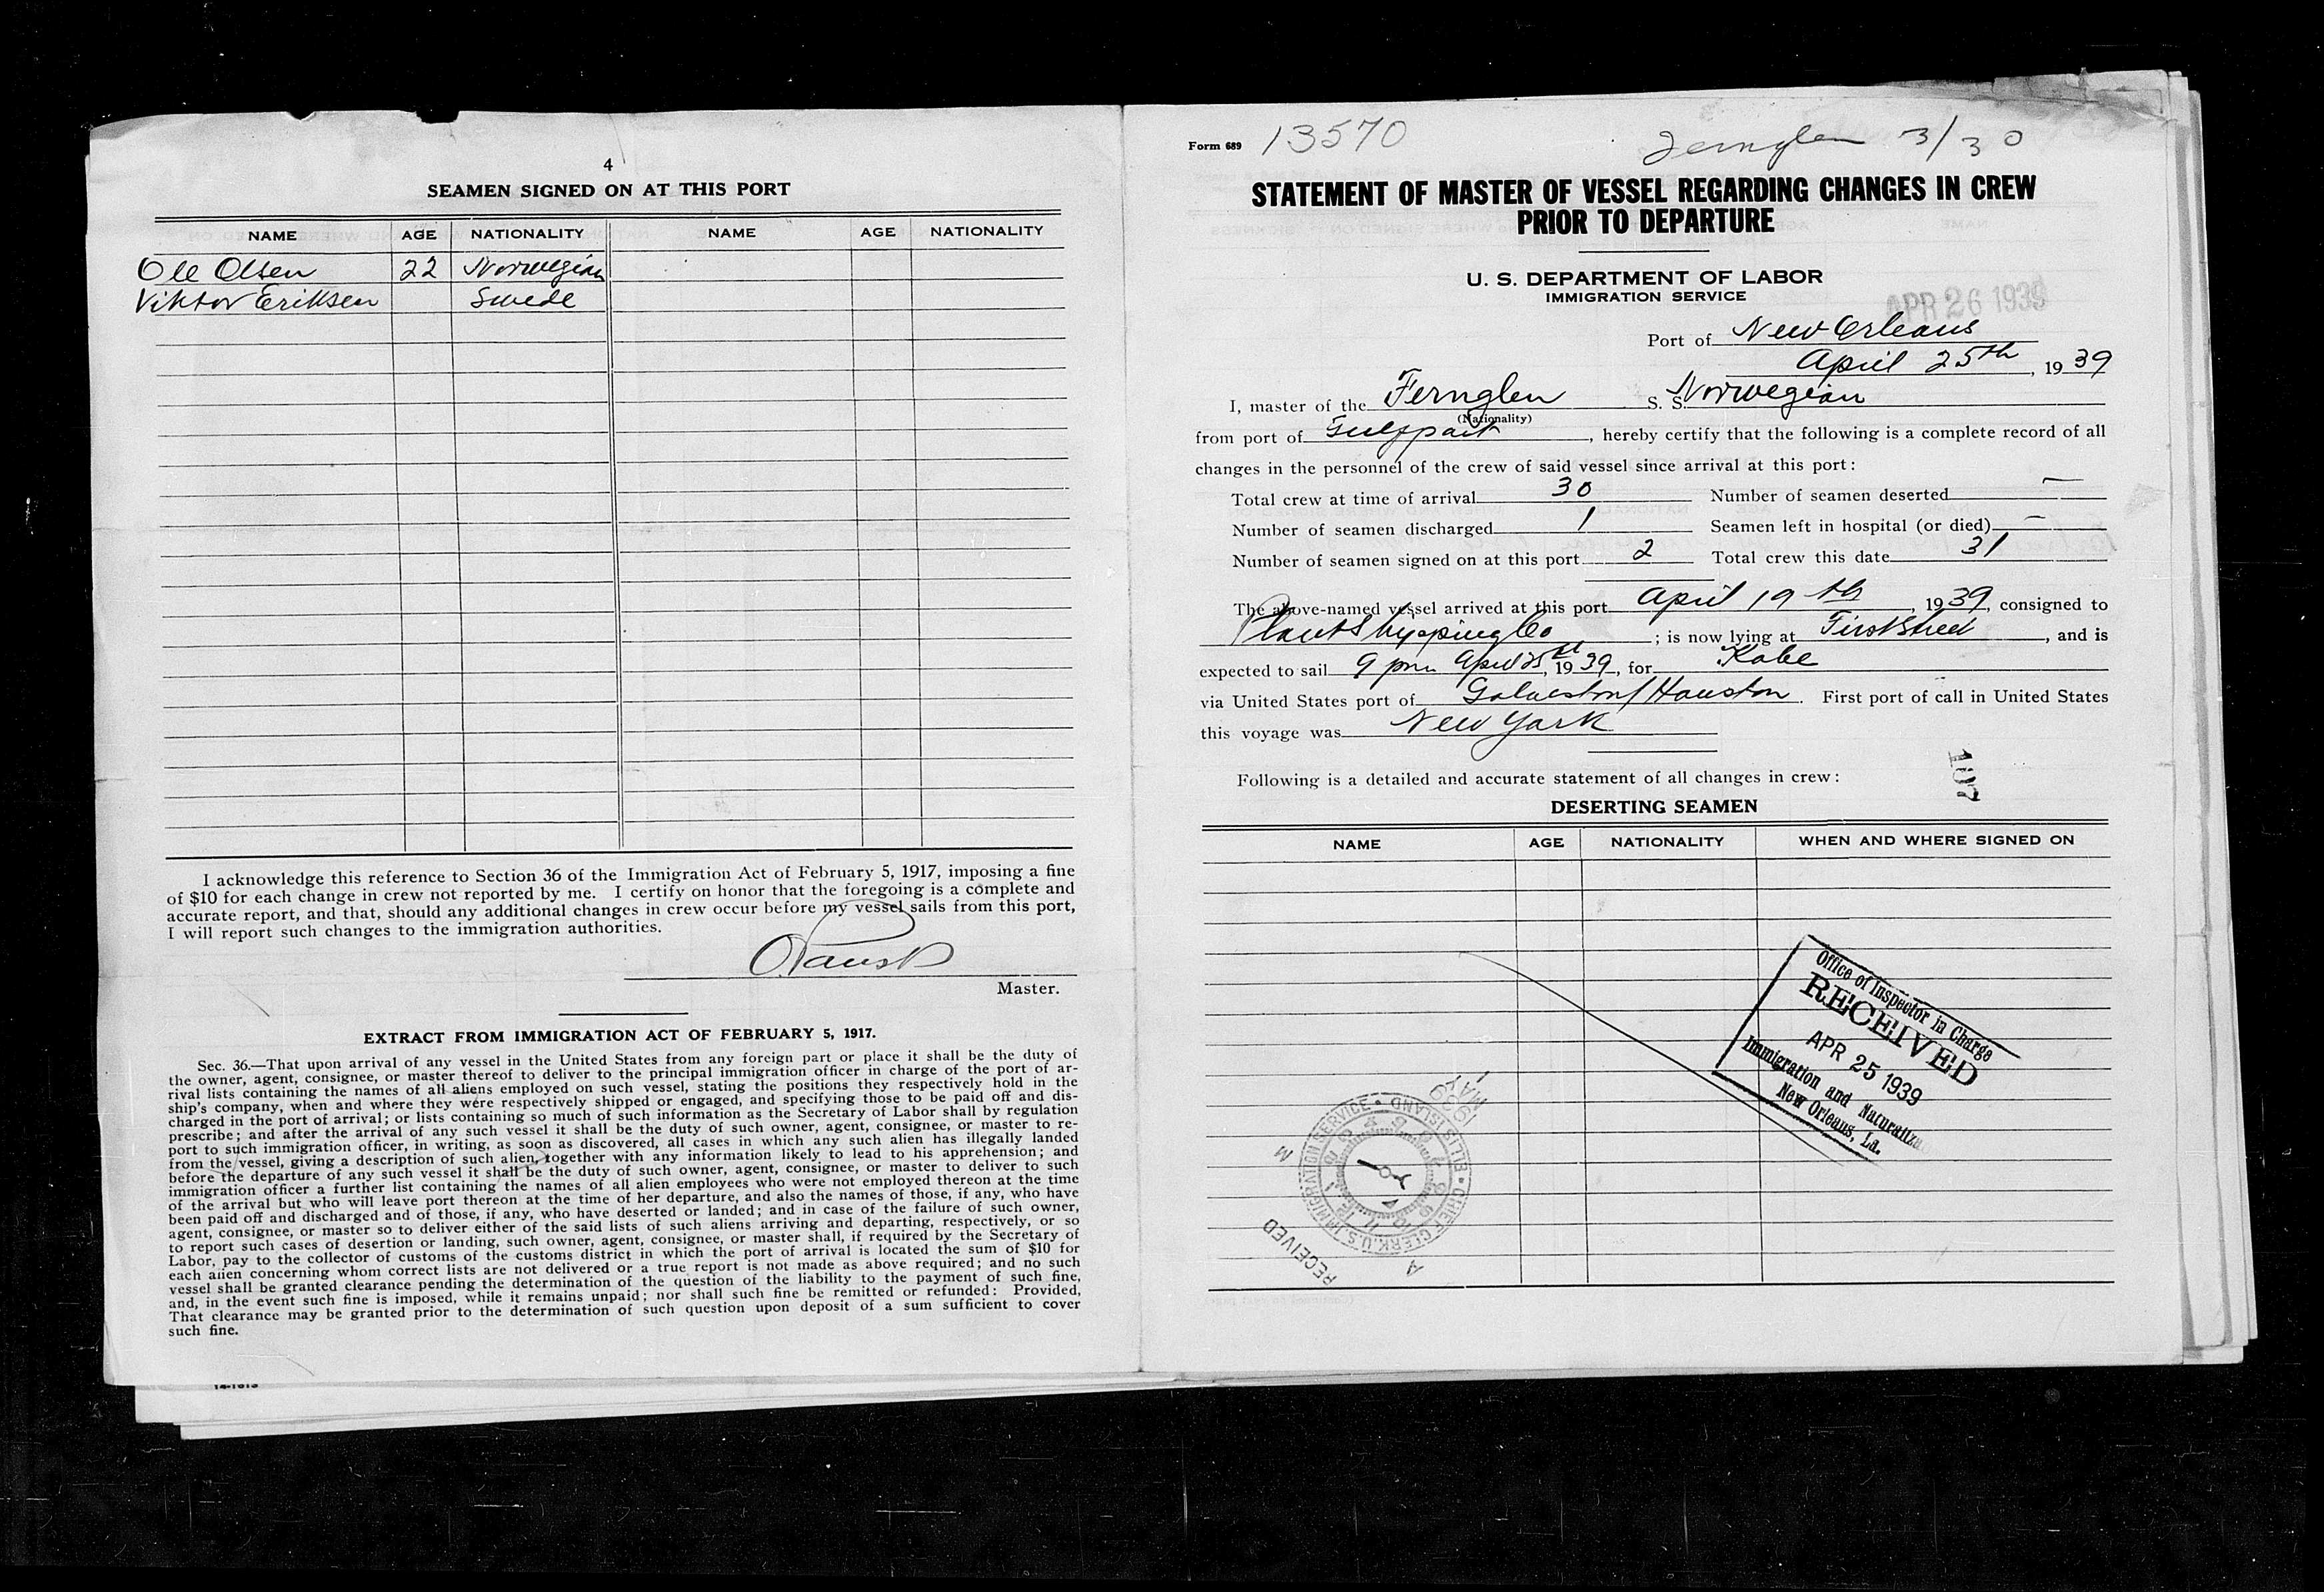 4
SEAMEN SIGNED ON AT THIS PORT
NAME AGE NATIONALITY NAME AGE NATIONALITY
Ole Olsen 22 Norwegian
Viktor Eriksen Swede
I acknowledge this reference to Section 36 of the Immigration Act of February 5, 1917, imposing a fine
of $10 for each change in crew not reported by me. I certify on honor that the foregoing is a complete and
accurate report, and that, should any additional changes in crew occur before my vessel sails from this port,
I will report such changes to the immigration authorities.
Master.
EXTRACT FROM IMMIGRATION ACT OF FEBRUARY 5, 1917.
Sec. 36.—That upon arrival of any vessel in the United States from any foreign part or place it shall be the duty of
the owner, agent, consignee, or master thereof to deliver to the principal immigration officer in charge of the port of ar-
rival lists containing the names of all aliens employed on such vessel, stating the positions they respectively hold in the
ship's company, when and where they were respectively shipped or engaged, and specifying those to be paid off and dis-
charged in the port of arrival; or lists containing so much of such information as the Secretary of Labor shall by regulation
prescribe; and after the arrival of any such vessel it shall be the duty of such owner, agent, consignee, or master to re-
port to such immigration officer, in writing, as soon as discovered, all cases in which any such alien has illegally landed
from the vessel, giving a description of such alien, together with any information likely to lead to his apprehension; and
before the departure of any such vessel it shall be the duty of such owner, agent, consignee, or master to deliver to such
immigration officer a further list containing the names of all alien employees who were not employed thereon at the time
of the arrival but who will leave port thereon at the time of her departure, and also the names of those, if any, who have
been paid off and discharged and of those, if any, who have deserted or landed; and in case of the failure of such owner,
agent, consignee, or master so to deliver either of the said lists of such aliens arriving and departing, respectively, or so
to report such cases of desertion or landing, such owner, agent, consignee, or master shall, if required by the Secretary of
Labor, pay to the collector of customs of the customs district in which the port of arrival is located the sum of $10 for
each alien concerning whom correct lists are not delivered or a true report is not made as above required; and no such
vessel shall be granted clearance pending the determination of the question of the liability to the payment of such fine,
and, in the event such fine is imposed, while it remains unpaid; nor shall such fine be remitted or refunded: Provided,
That clearance may be granted prior to the determination of such question upon deposit of a sum sufficient to cover
such fine.
Form 689 13570 Fernglen 3/30
STATEMENT OF MASTER OF VESSEL REGARDING CHANGES IN CREW
PRIOR TO DEPARTURE
U. S. DEPARTMENT OF LABOR
IMMIGRATION SERVICE
APR 26 1939
Port of New Orleans
April 25th, 1939
I, master of the Fernglen S. S. Norwegian
(Nationality)
from port of Gulfport, hereby certify that the following is a complete record of all
changes in the personnel of the crew of said vessel since arrival at this port:
Total crew at time of arrival 30 Number of seamen deserted —
Number of seamen discharged 1 Seamen left in hospital (or died) —
Number of seamen signed on at this port 2 Total crew this date 31
The above-named vessel arrived at this port April 19th, 1939, consigned to
Plant Shipping Co; is now lying at First Street, and is
expected to sail 9 pm April 25th, 1939, for Kobe
via United States port of Galveston/Houston. First port of call in United States
this voyage was New York
107
Following is a detailed and accurate statement of all changes in crew:
DESERTING SEAMEN
NAME AGE NATIONALITY WHEN AND WHERE SIGNED ON
Office of Inspector in Charge
RECEIVED
APR 25 1939
Immigration and Naturaliza
New Orleans, La.
CHIEF CLERK, U.S. IMMIGRATION SERVICE • ELLIS ISLAND •
RECEIVED